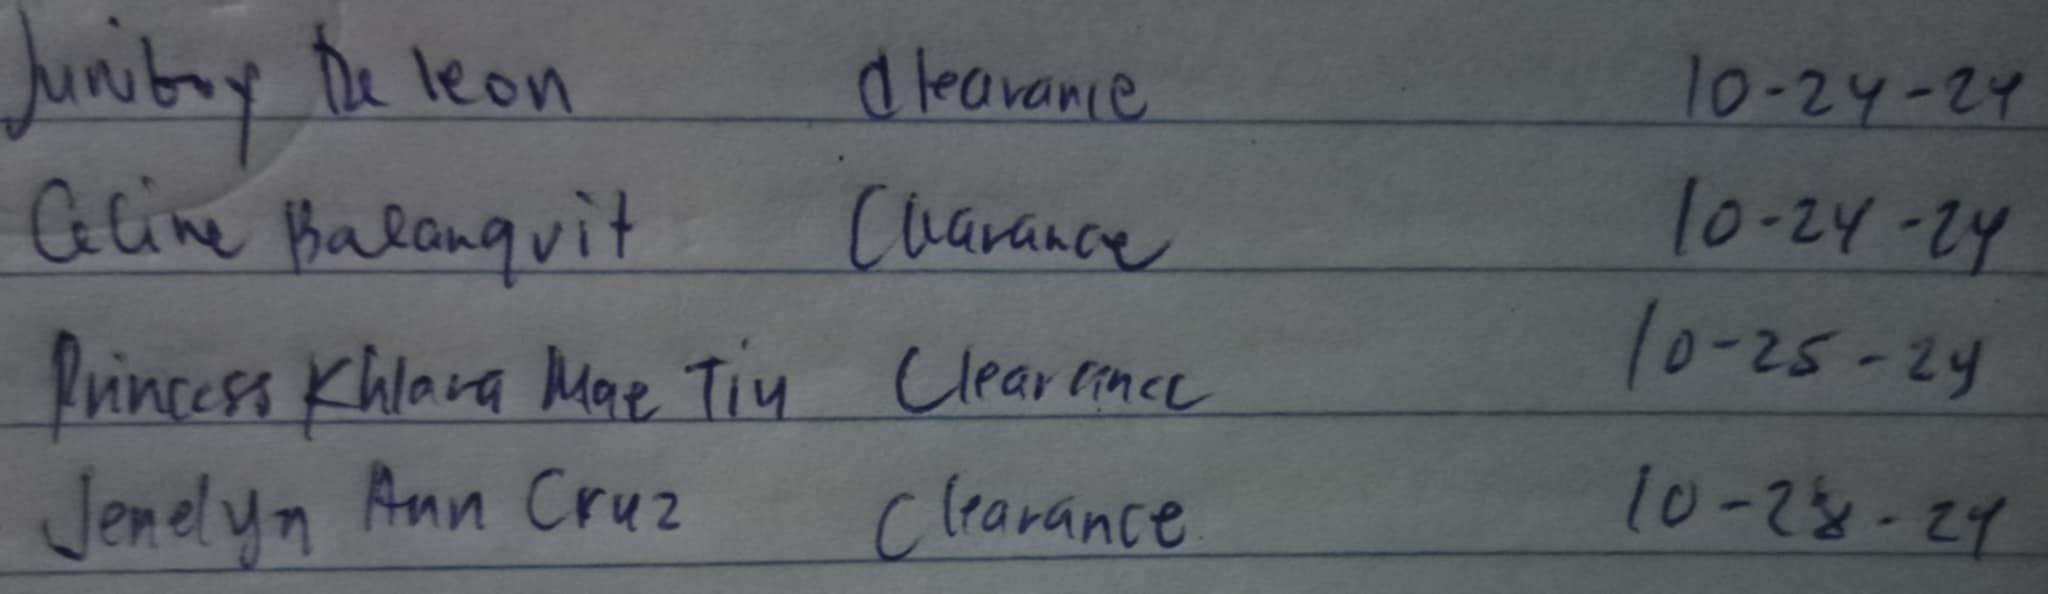 Juniboy De leon clearance 10-24-24
Celine Balanquit Clearance 10-24-24
Princess Khlara Mae Tiu Clearance 10-25-24
Jenelyn Ann Cruz Clearance 10-28-24